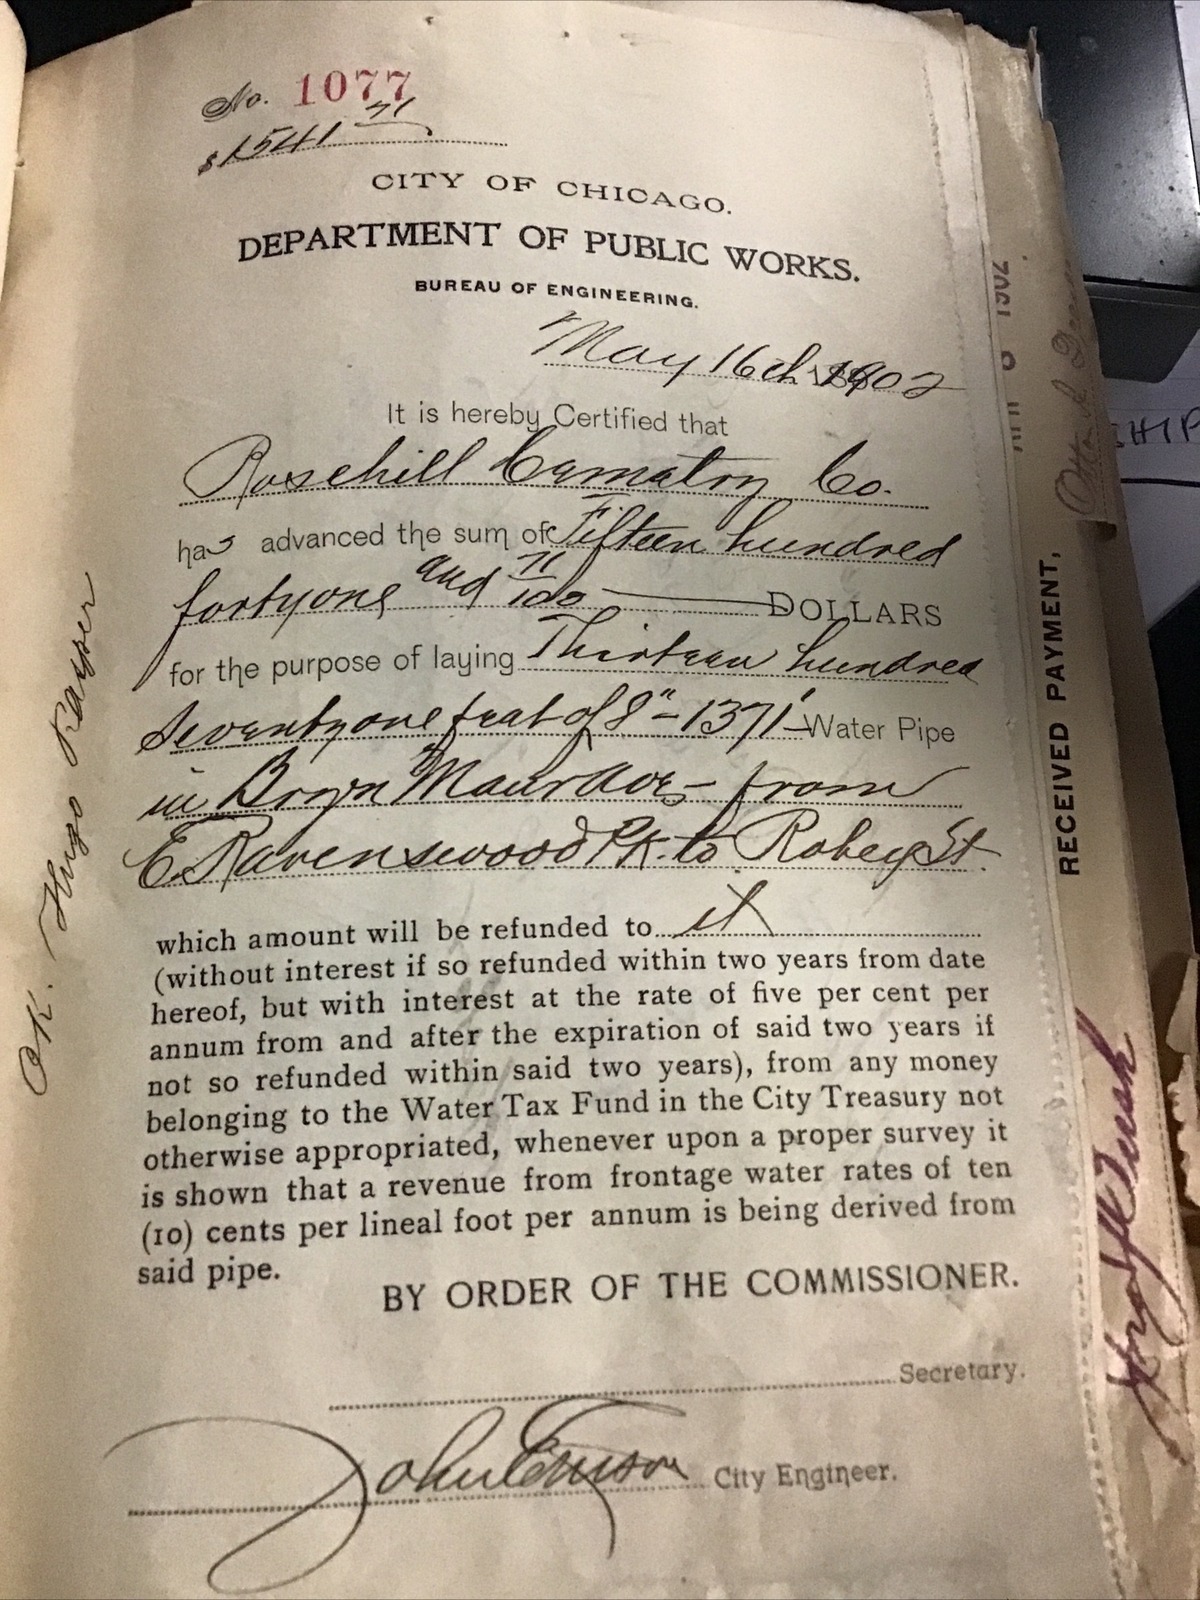 No. 1077
$1541 71
CITY OF CHICAGO.
DEPARTMENT OF PUBLIC WORKS.
BUREAU OF ENGINEERING.
May 16th 1902
It is hereby Certified that
Rosehill Cemetery Co.
has advanced the sum of Fifteen hundred
fortyone and 71/100 DOLLARS
for the purpose of laying Thirteen hundred
seventyone feet of 8" - 1371' Water Pipe
in Bryn Mawr Ave - from
E. Ravenswood Pk. to Robey St.
which amount will be refunded to it
(without interest if so refunded within two years from date
hereof, but with interest at the rate of five per cent per
annum from and after the expiration of said two years if
not so refunded within said two years), from any money
belonging to the Water Tax Fund in the City Treasury not
otherwise appropriated, whenever upon a proper survey it
is shown that a revenue from frontage water rates of ten
(10) cents per lineal foot per annum is being derived from
said pipe.
BY ORDER OF THE COMMISSIONER.
Secretary.
John Ericson City Engineer.
OK. Hugo Rayser
RECEIVED PAYMENT,
1902
SHIP